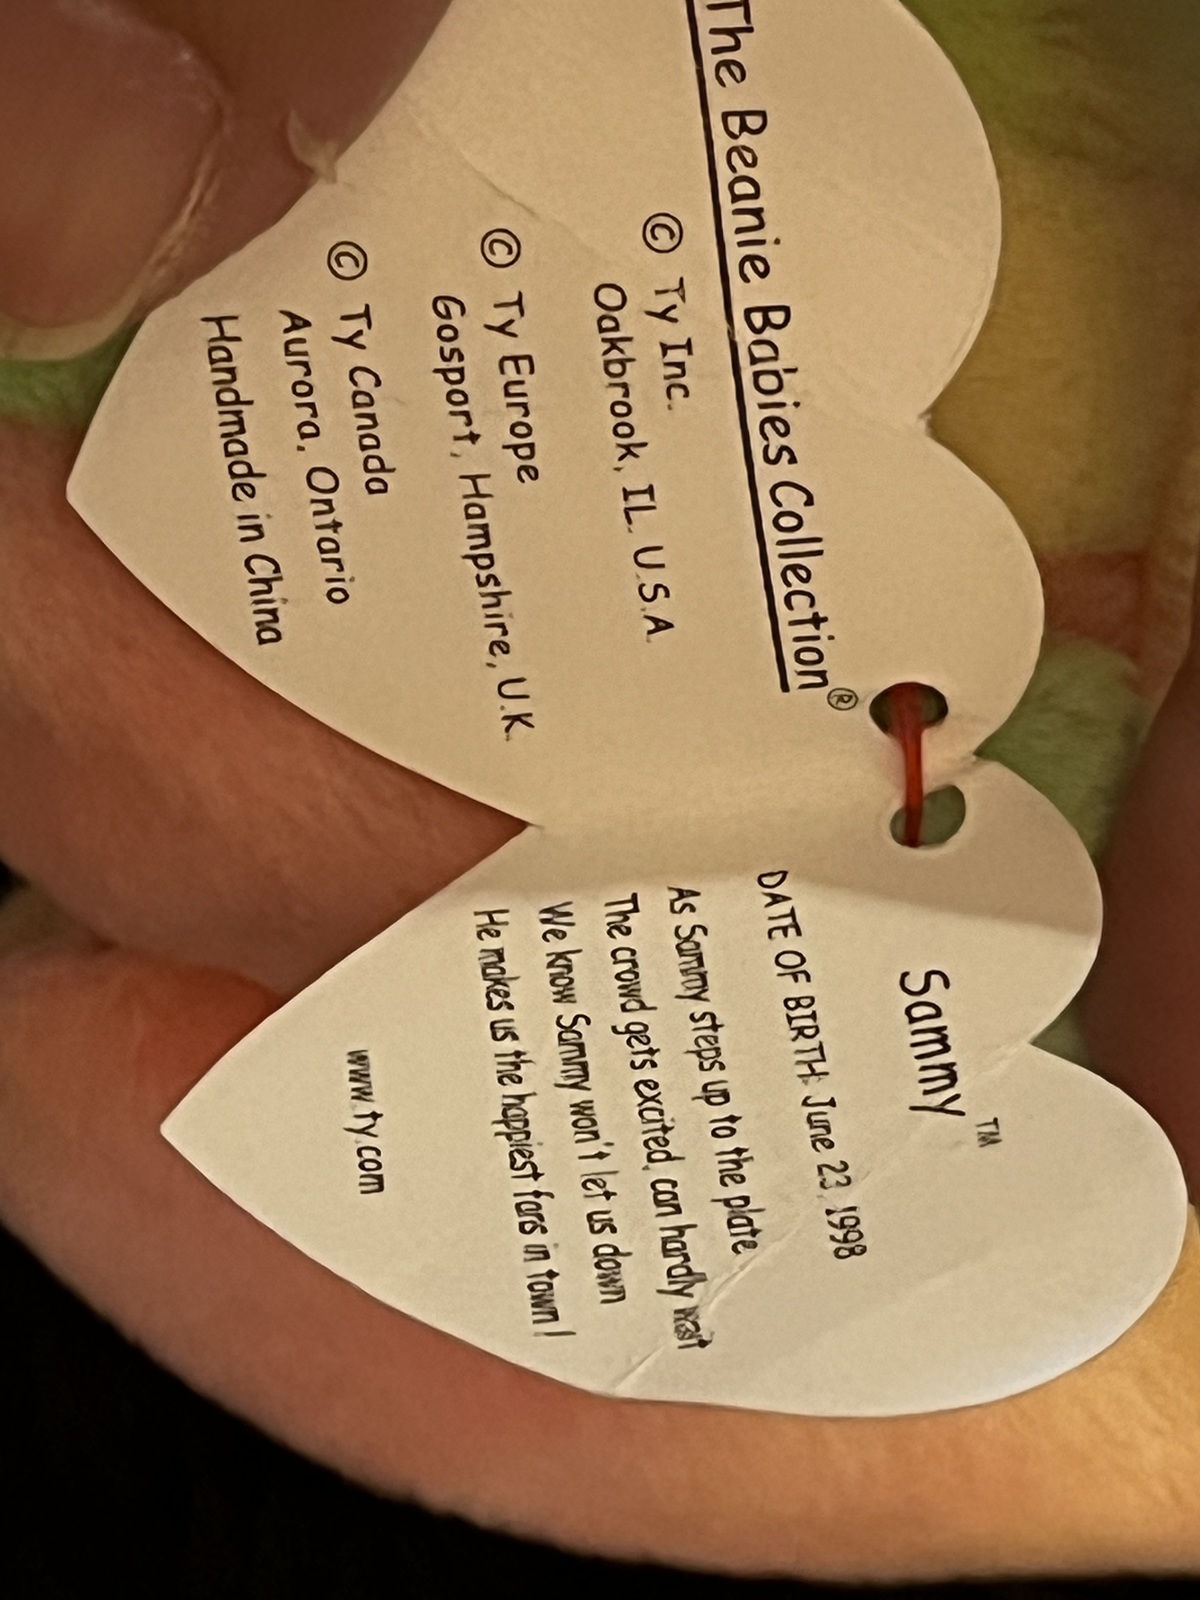 The Beanie Babies Collection®
© Ty Inc.
Oakbrook, IL. U.S.A.
© Ty Europe
Gosport, Hampshire, U.K.
© Ty Canada
Aurora, Ontario
Handmade in China
Sammy™
DATE OF BIRTH: June 23, 1998
As Sammy steps up to the plate
The crowd gets excited, can hardly wait
We know Sammy won't let us down
He makes us the happiest fans in town!
www.ty.com